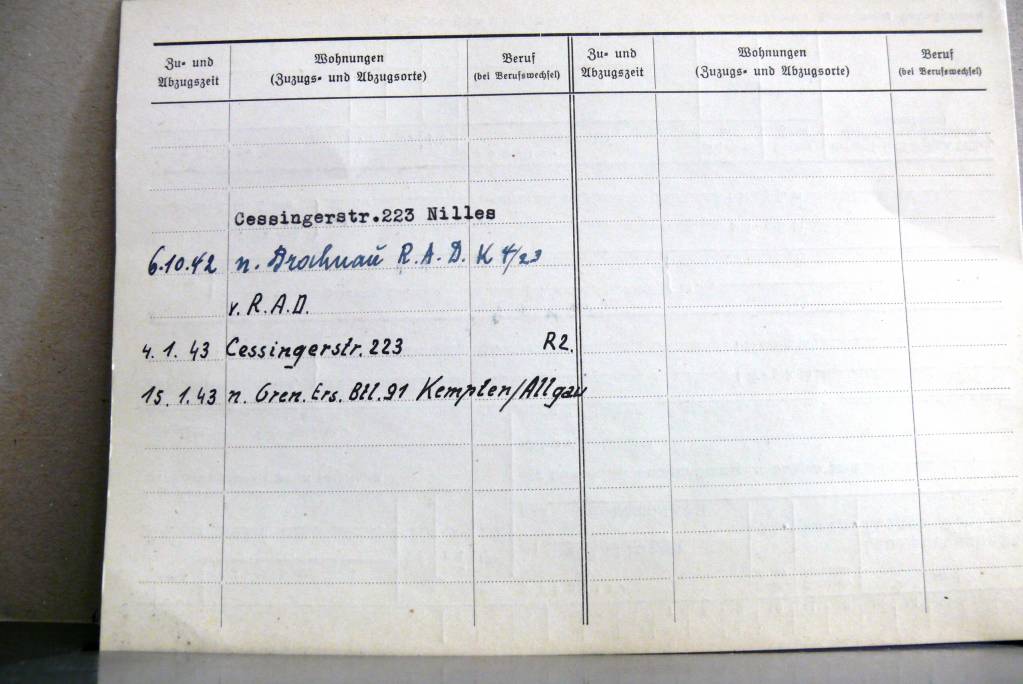 Zu- und Abzugszeit
Wohnungen
(Zuzugs- und Abzugsorte)
Beruf
(bei Berufswechsel)
Zu- und Abzugszeit
Wohnungen
(Zuzugs- und Abzugsorte)
Beruf
(bei Berufswechsel)
Cessingerstr.223 Nilles
6.10.42 n. R.A.D. K 4/23
v. R.A.D.
4. 1. 43 Cessingerstr. 223 R2.
15. 1.43 n. Gren. Ers. Btl. 91 Kempten/Allgäu